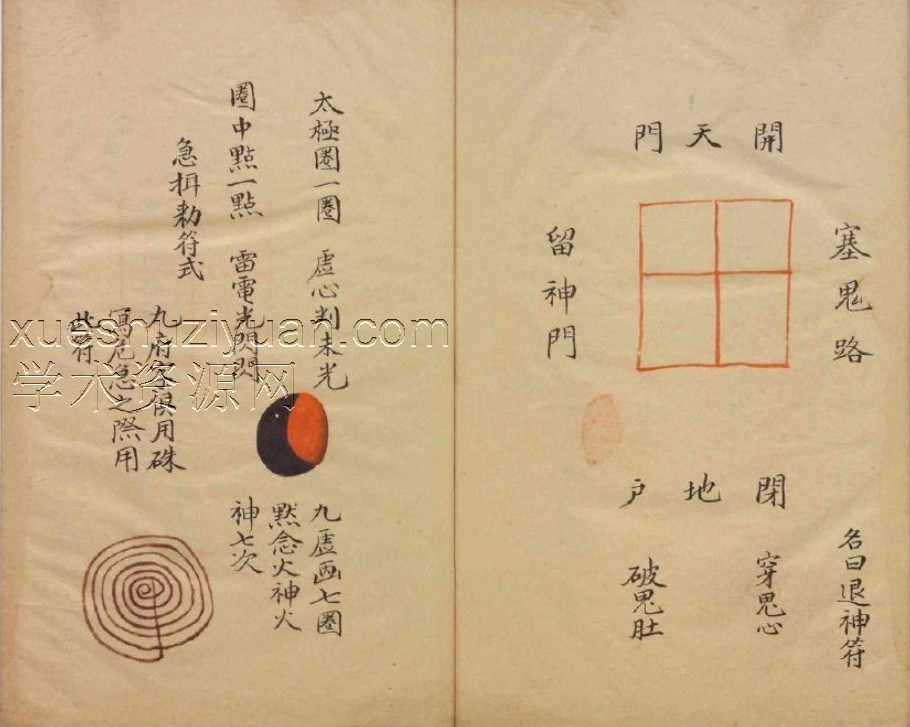 開天門
塞鬼路
留神門
閉地戶
名曰退神符
穿鬼心
破鬼肚
太極圈一圈　虛心判未光
圈中點一點　雷電光閃閃
九虛畫七圈
默念火神火
神七次
急捐勅符式
九府
俱用硃
寫危急之際用
此符
xueshuziyuan.com
学术资源网